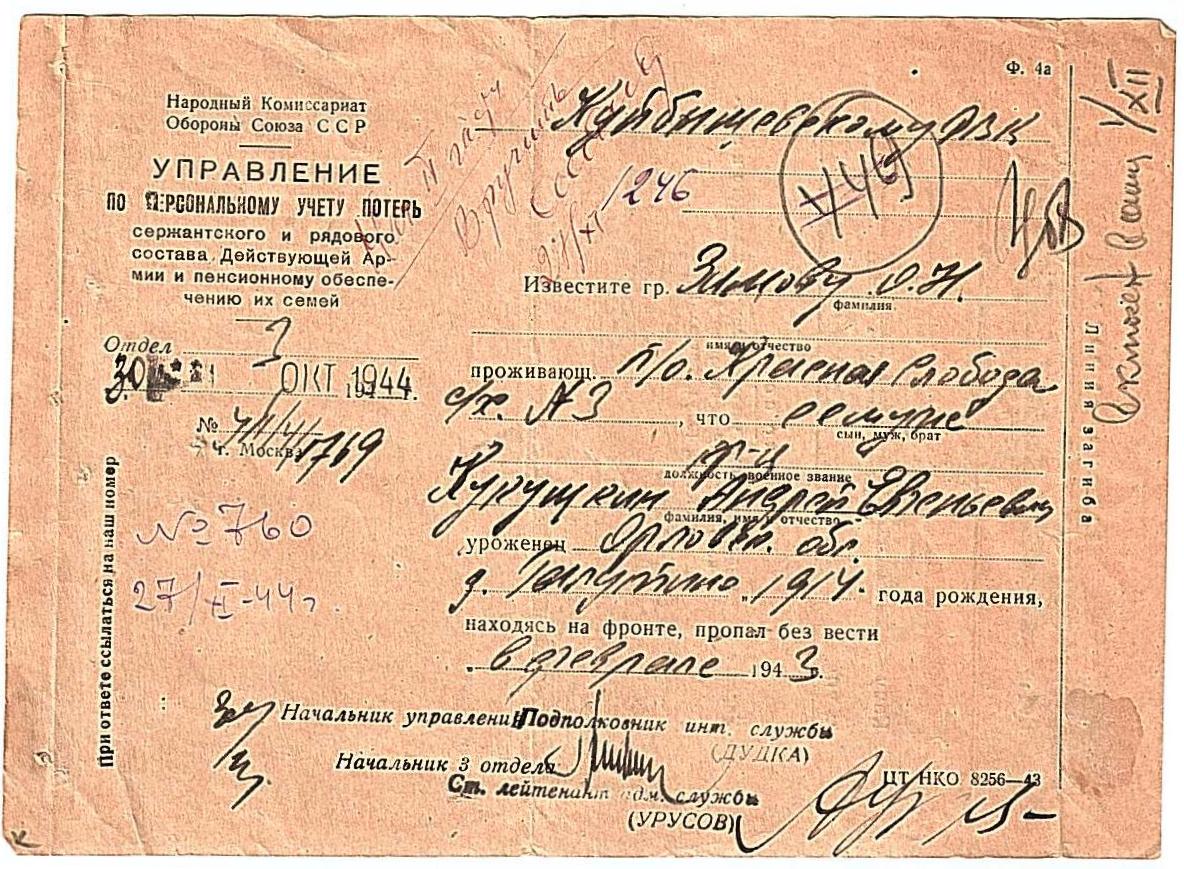 Ф. 4а
Народный Комиссариат
Обороны Союза ССР
УПРАВЛЕНИЕ
ПО ПЕРСОНАЛЬНОМУ УЧЕТУ ПОТЕРЬ
сержантского и рядового
состава Действующей Ар-
мии и пенсионному обеспе-
чению их семей
Отдел 3
30 ОКТ 1944
№
г. Москва
№ 760
27/XI-44г.
При ответе ссылаться на наш номер
Вручить
27/XI
1246
Куйбышевскому РВК
449
Известите гр. Зимову О.Н.
фамилия
имя и отчество
проживающ. п/о. Красная Слобода
с/х. №3, что ее муж
сын, муж, брат
кр-ц
должность, военное звание
Кукушкин Андрей
фамилия, имя и отчество
уроженец Орловск. обл.
д. 1914. года рождения,
находясь на фронте, пропал без вести
в феврале 1943.
Начальник управления Подполковник инт. службы
(ДУДКА)
Начальник 3 отдела
Ст. лейтенант адм. службы
(УРУСОВ)
ЦТ НКО 8256—43
Линия загиба
1/XII